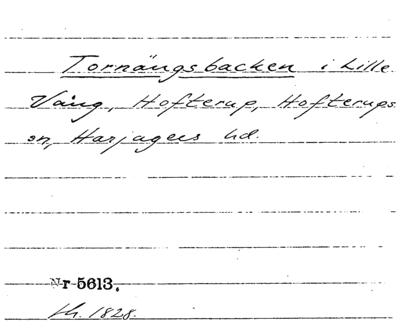 Tornängsbacken i Lille
Vång, Hofterup, Hofterups
sn, Harjagers hd.
Nr 5613.
Lh. 1828.